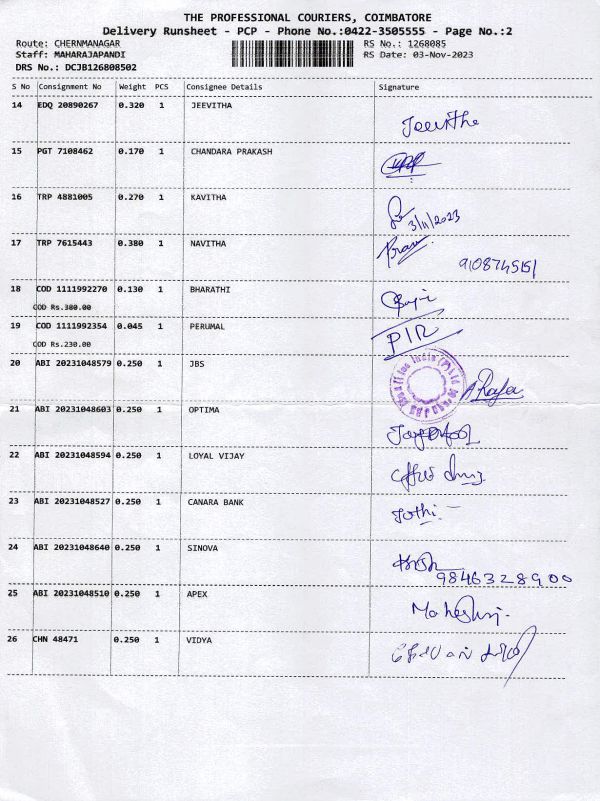 THE PROFESSIONAL COURIERS, COIMBATORE
Delivery Runsheet - PCP - Phone No.:0422-3505555 - Page No.:2
Route: CHERNMANAGAR RS No.: 1268085
Staff: MAHARAJAPANDI RS Date: 03-Nov-2023
DRS No.: DCJB126808502
S No Consignment No Weight PCS Consignee Details Signature
14 EDQ 20890267 0.320 1 JEEVITHA
Jeevitha
15 PGT 7108462 0.170 1 CHANDARA PRAKASH
16 TRP 4881005 0.270 1 KAVITHA
3/11/2023
17 TRP 7615443 0.380 1 NAVITHA
18 COD 1111992270 0.130 1 BHARATHI
COD Rs.380.00
19 COD 1111992354 0.045 1 PERUMAL
PIR
COD Rs.230.00
20 ABI 20231048579 0.250 1 JBS
21 ABI 20231048603 0.250 1 OPTIMA
22 ABI 20231048594 0.250 1 LOYAL VIJAY
23 ABI 20231048527 0.250 1 CANARA BANK
Jothi
24 ABI 20231048640 0.250 1 SINOVA
9846328900
25 ABI 20231048510 0.250 1 APEX
26 CHN 48471 0.250 1 VIDYA